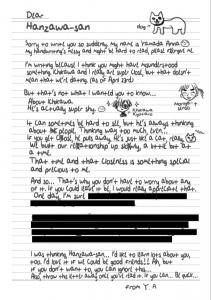 Dear
Hanzawa-san
dog→
Sorry to write you so suddenly. My name is Yamada Anna.
My handwriting's messy and might be hard to read, please forgive me.
I'm writing because I think you might have misunderstood
something. Ichikawa and I really are super close, but that doesn't
mean that we're dating. (as of April 23rd)
But that's not what I wanted you to know...
About Ichikawa.
He's actually super shy.
Ichikawa
Kyotaro
It can sometimes be hard to see, but he's always thinking
about the people. Thinking way too much, even...
If you get close, he puts away. He's just like a cat, really.
We built our relationship up slowly, a little bit at
a time.
That time and that closeness is something special
and precious to me.
And so... That's why you don't have to worry about any
of it. If you could lease it be, I would really appreciate that.
One day, I'm sure
I was thinking, Hanzawa-san... I'd like to learn lots about you,
too. I'd love it if we could be good friends!! Ah, but
if you don't want to, you can ignore this...
Also, throw the letter away once you've read it. If you can... Be quick...
from Y. A